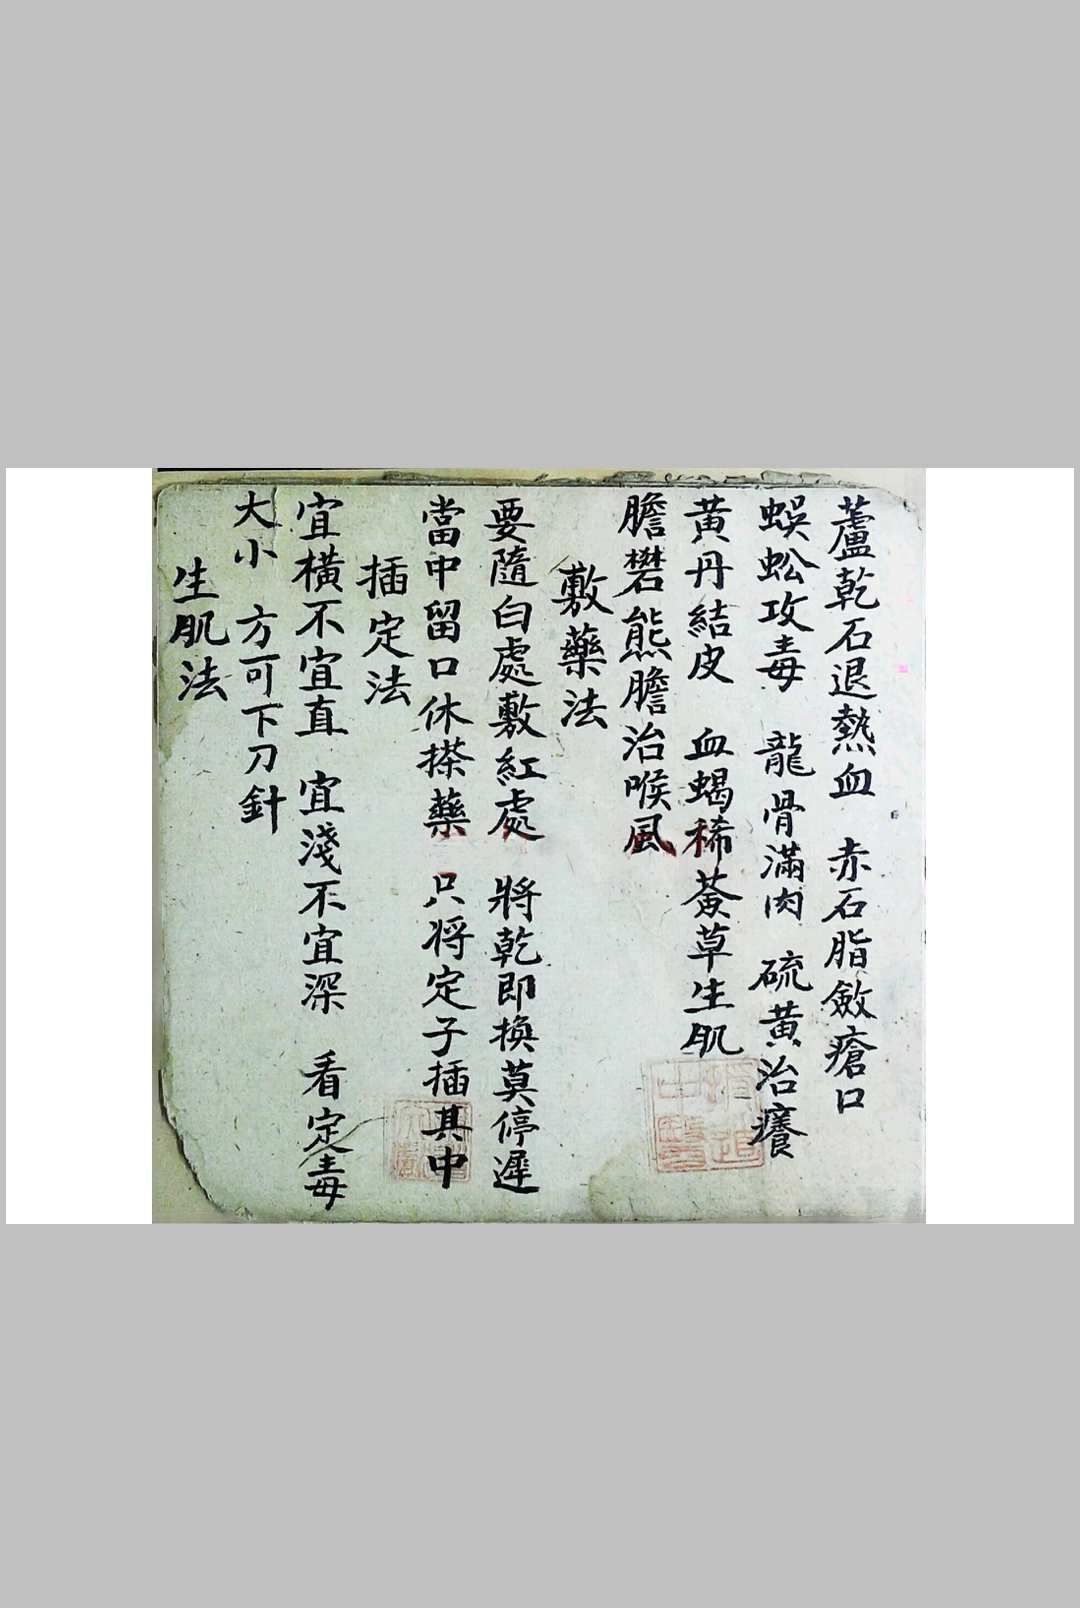 蘆乾石退熱血 赤石脂斂瘡口
蜈蚣攻毒 龍骨滿肉 硫黃治癢
黃丹結皮 血蝎稀薟草生肌
膽礬熊膽治喉風
敷藥法
要隨白處敷紅處 將乾即換莫停遲
當中留口休搽藥 只将定子插其中
插定法
宜橫不宜直 宜淺不宜深 看定毒
大小 方可下刀針
生肌法